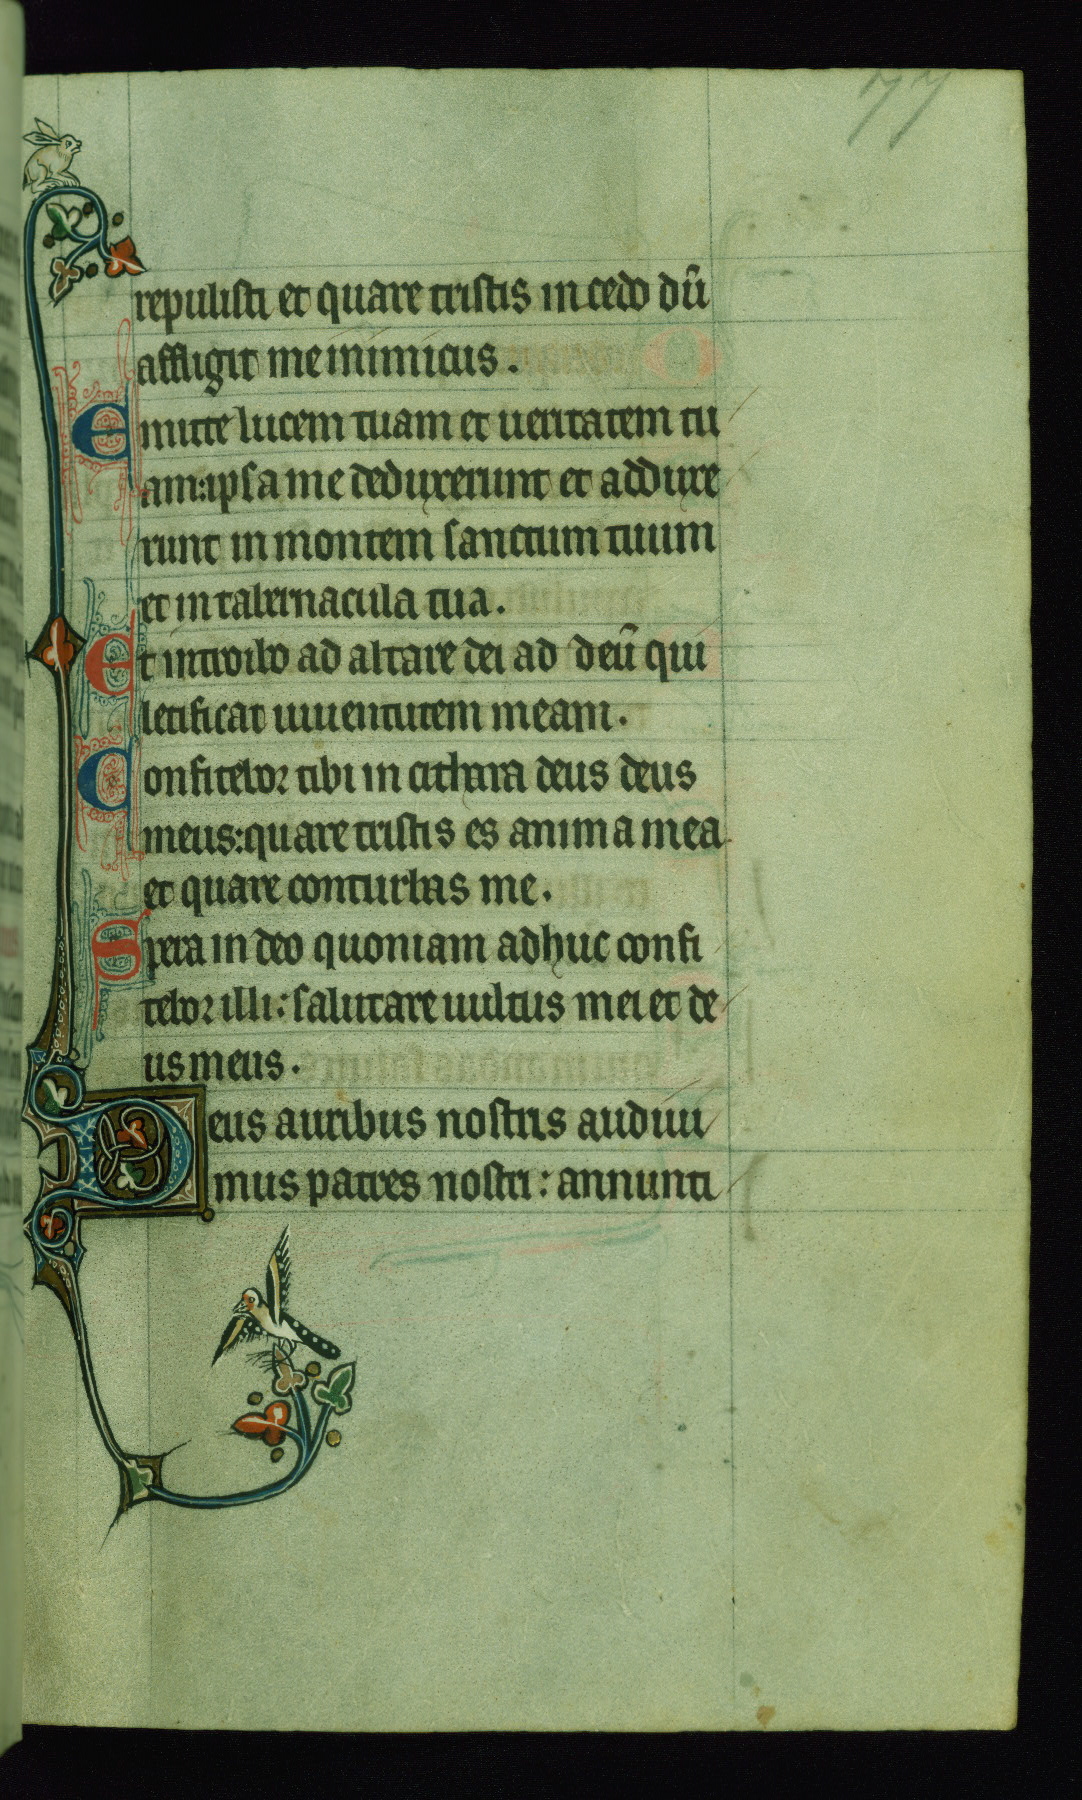 77
repulisti et quare tristis incedo dū
affligit me inimicus.
Emitte lucem tuam et ueritatem tu
am: ipsa me deduxerunt et adduxe
runt in montem sanctum tuum
et in tabernacula tua.
Et introibo ad altare dei ad deū qui
letificat iuuentutem meam.
Confitebor tibi in cithara deus deus
meus: quare tristis es anima mea
et quare conturbas me.
Spera in deo quoniam adhuc confi
tebor illi: salutare uultus mei et de
us meus.
Deus auribus nostris audiui
mus patres nostri: annunti